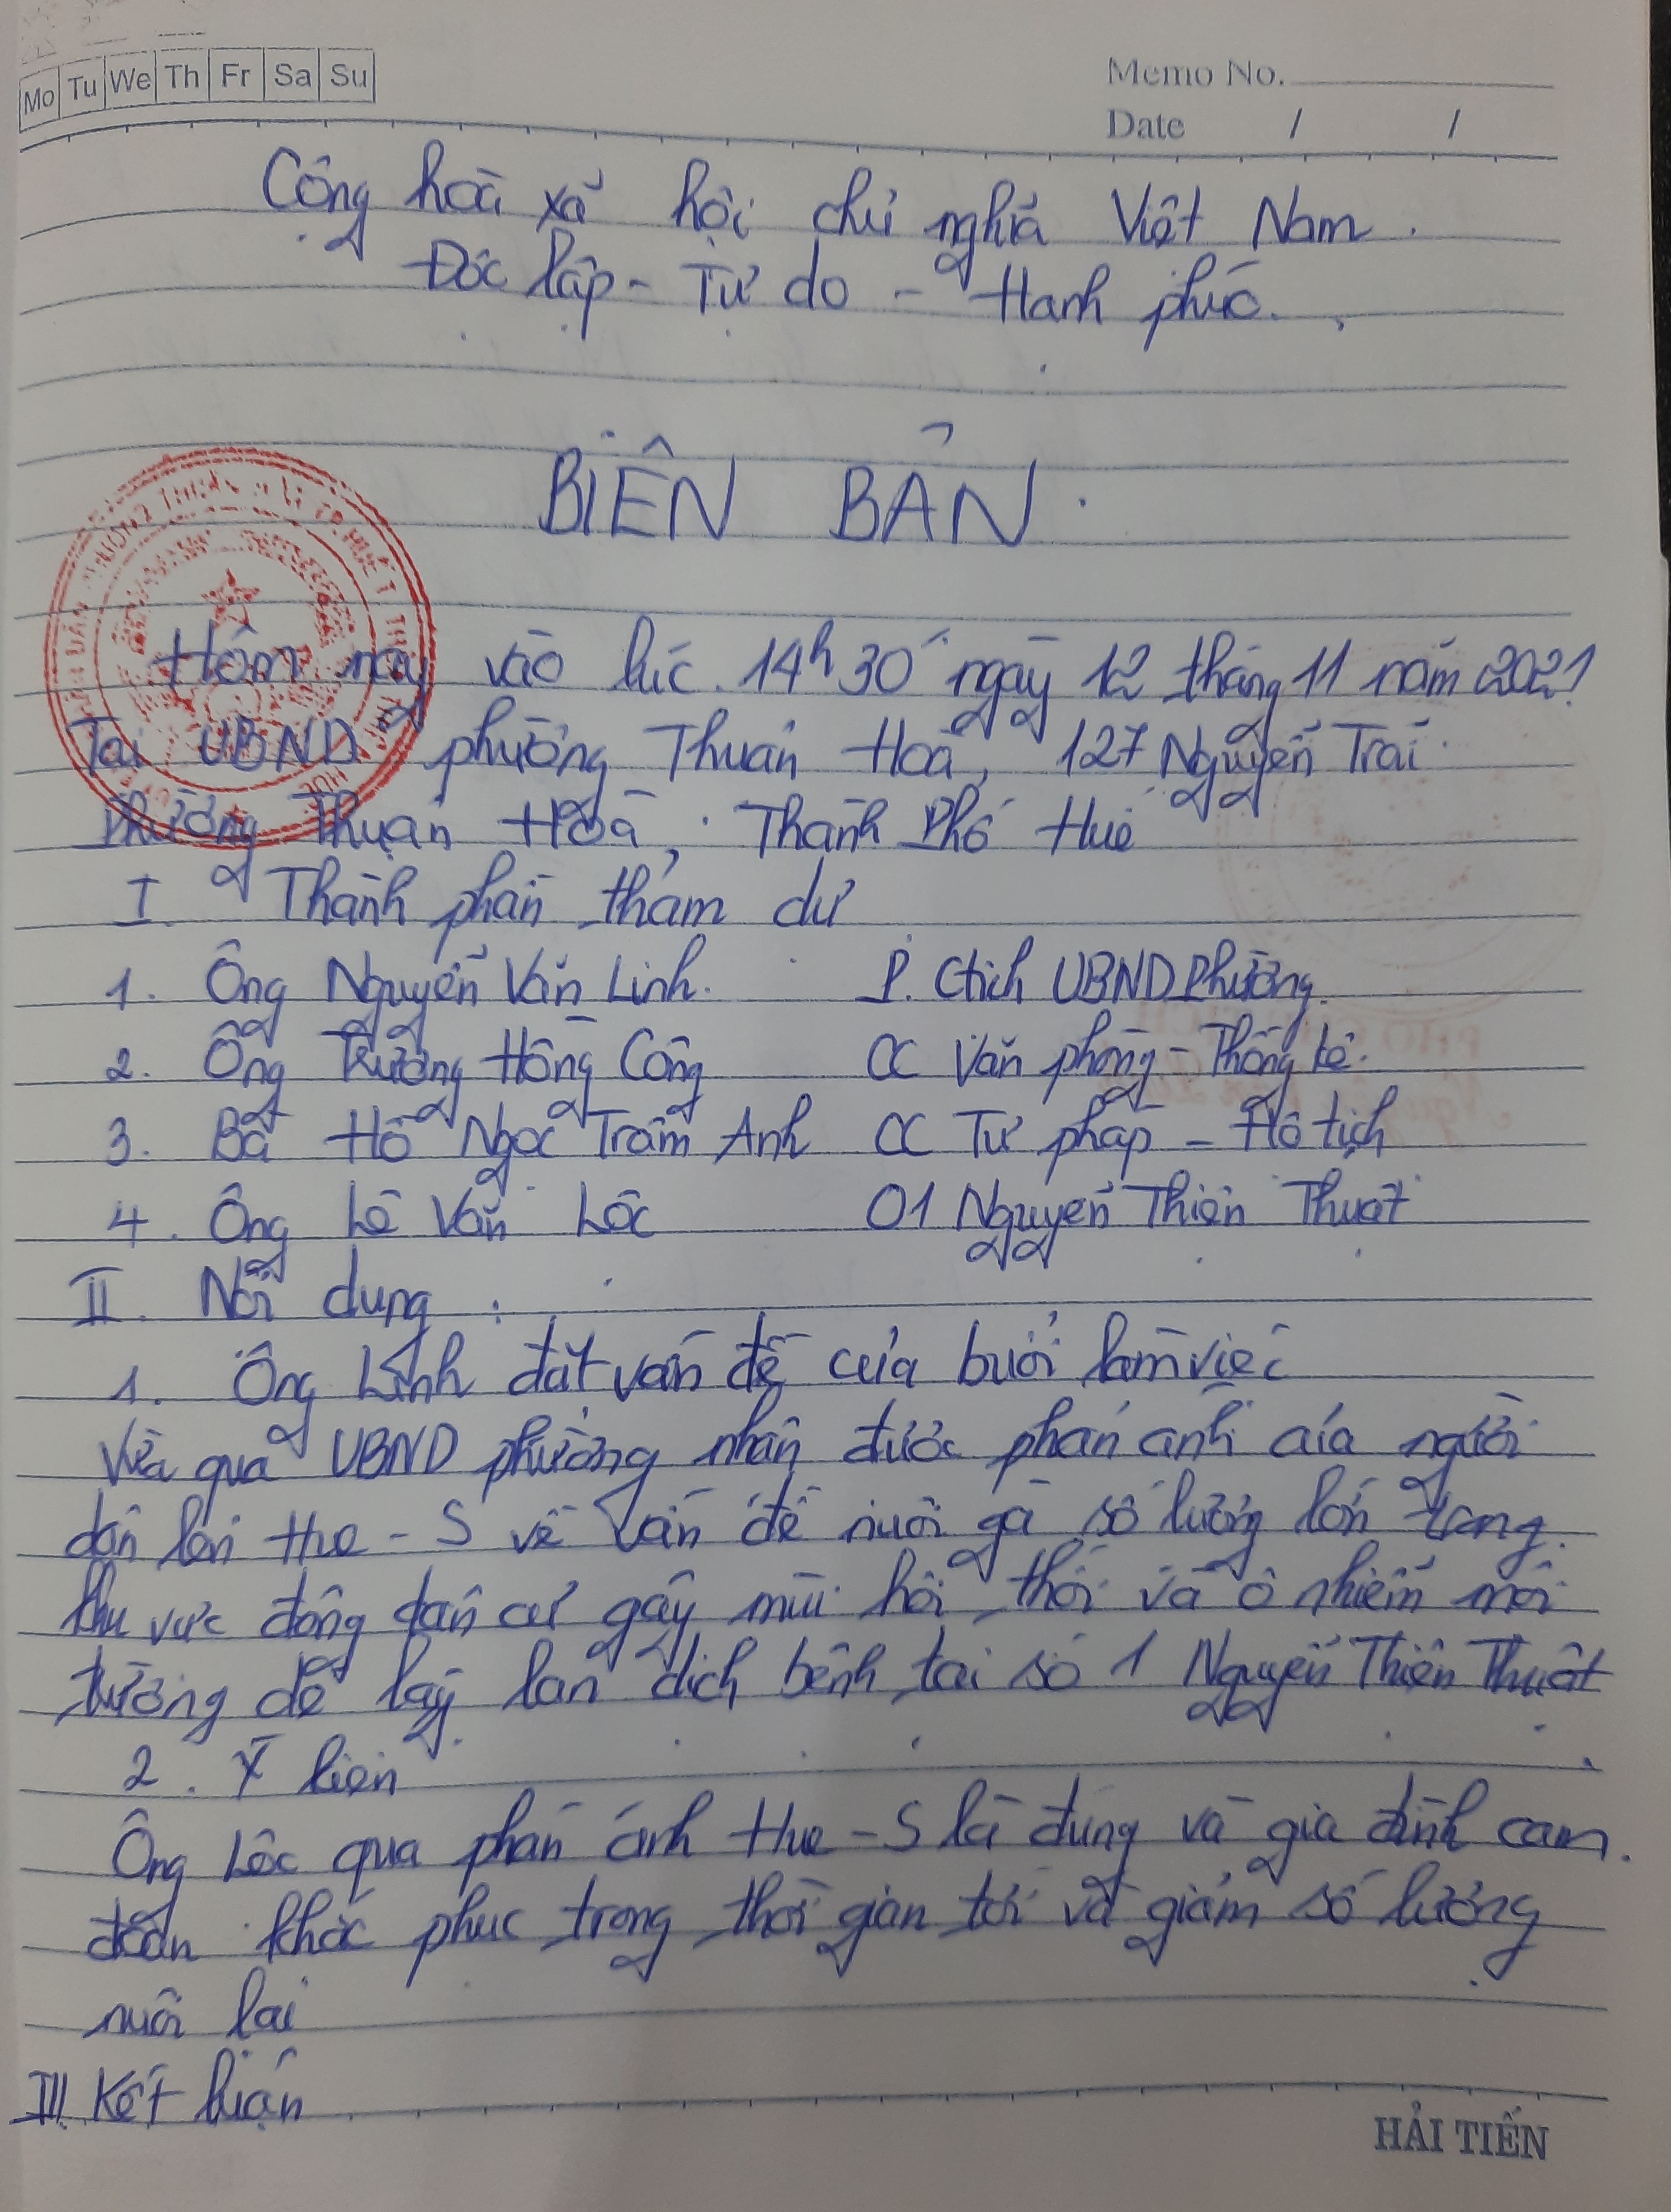 Mo Tu We Th Fr Sa Su
Memo No.
Date / /
Cộng hoà xã hội chủ nghĩa Việt Nam.
Độc lập - Tự do - Hạnh phúc.
BIÊN BẢN
Hôm nay vào lúc 14h30' ngày 12 tháng 11 năm 2021
Tại UBND phường Thuận Hoà, 127 Nguyễn Trãi
Phường Thuận Hoà, Thành Phố Huế
I. Thành phần tham dự
1. Ông Nguyễn Văn Linh. P. Ctịch UBND Phường.
2. Ông Trương Hồng Công CC Văn phòng - Thống kê.
3. Bà Hồ Ngọc Trâm Anh CC Tư pháp - Hộ tịch
4. Ông Lê Văn Lộc 01 Nguyễn Thiện Thuật
II. Nội dung:
1. Ông Linh đặt vấn đề của buổi làm việc
Vừa qua UBND phường nhận được phản ánh của người
dân lên Hue-S về vấn đề nuôi gà số lượng lớn trong
khu vực đông dân cư gây mùi hôi thối và ô nhiễm môi
trường dễ lây lan dịch bệnh tại số 1 Nguyễn Thiện Thuật
2. Ý kiến
Ông Lộc qua phản ánh Hue-S là đúng và gia đình cam
đoan khắc phục trong thời gian tới và giảm số lượng
nuôi lại
III. Kết luận
HẢI TIẾN